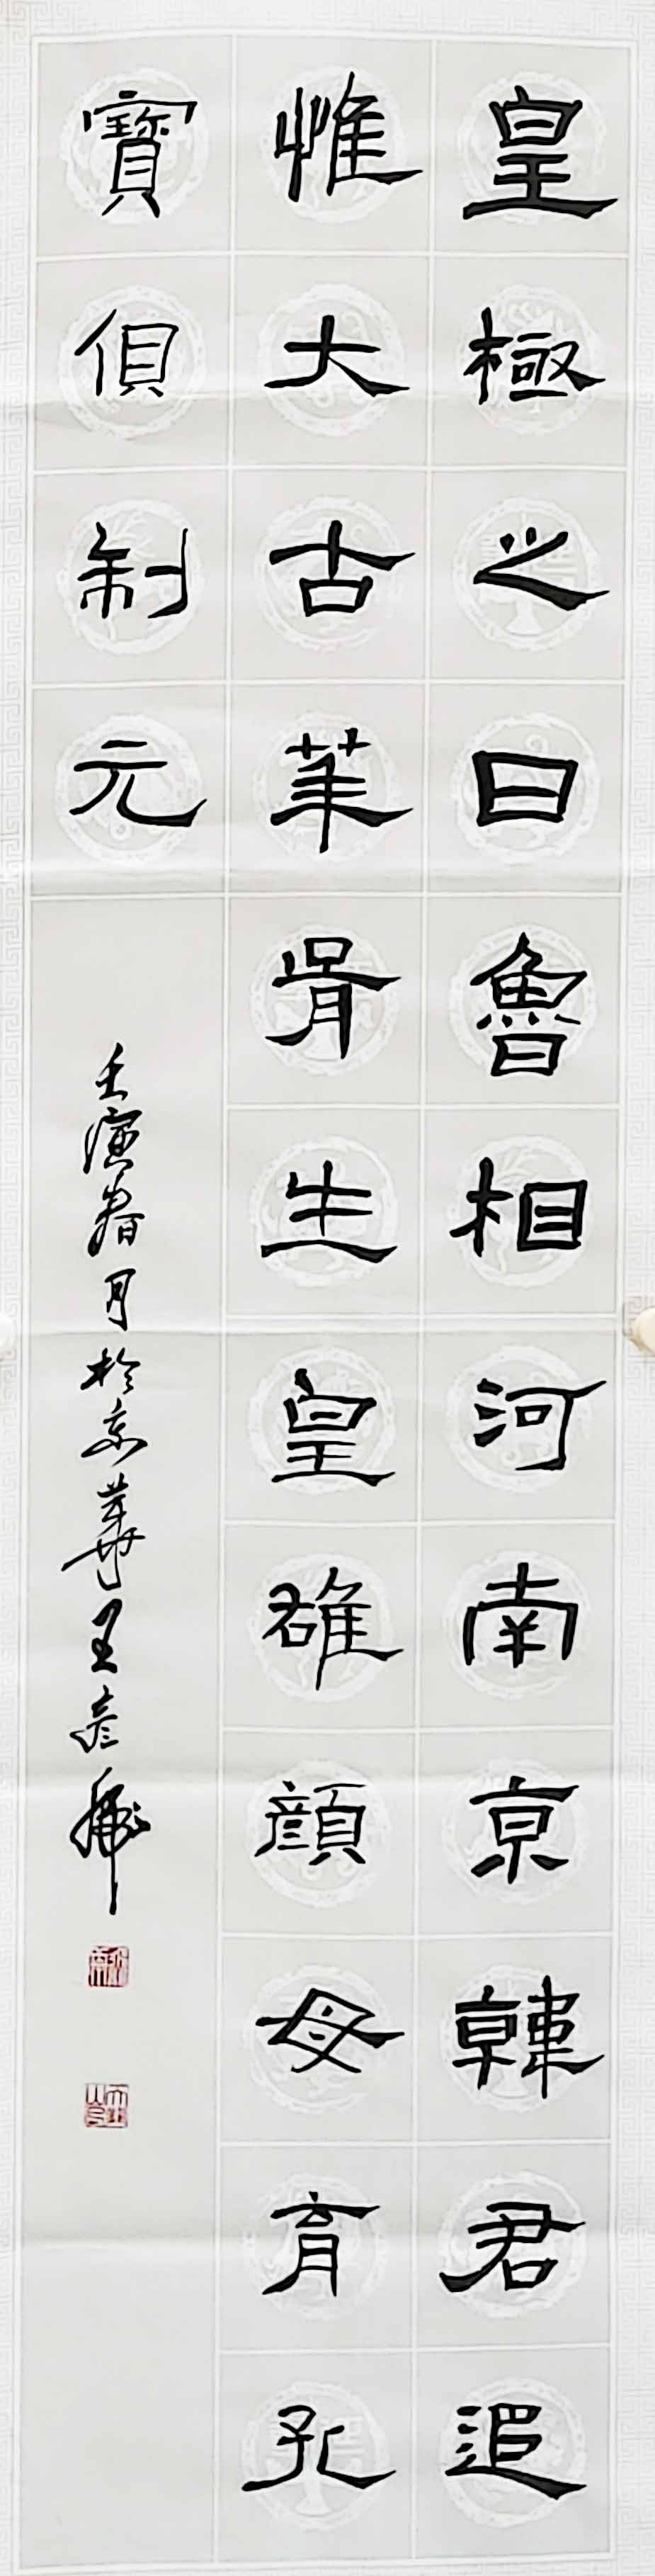 皇極之日魯相河南京韓君追
惟大古華胥生皇雄顏母育孔
寶俱制元
壬寅春月於京華王彥